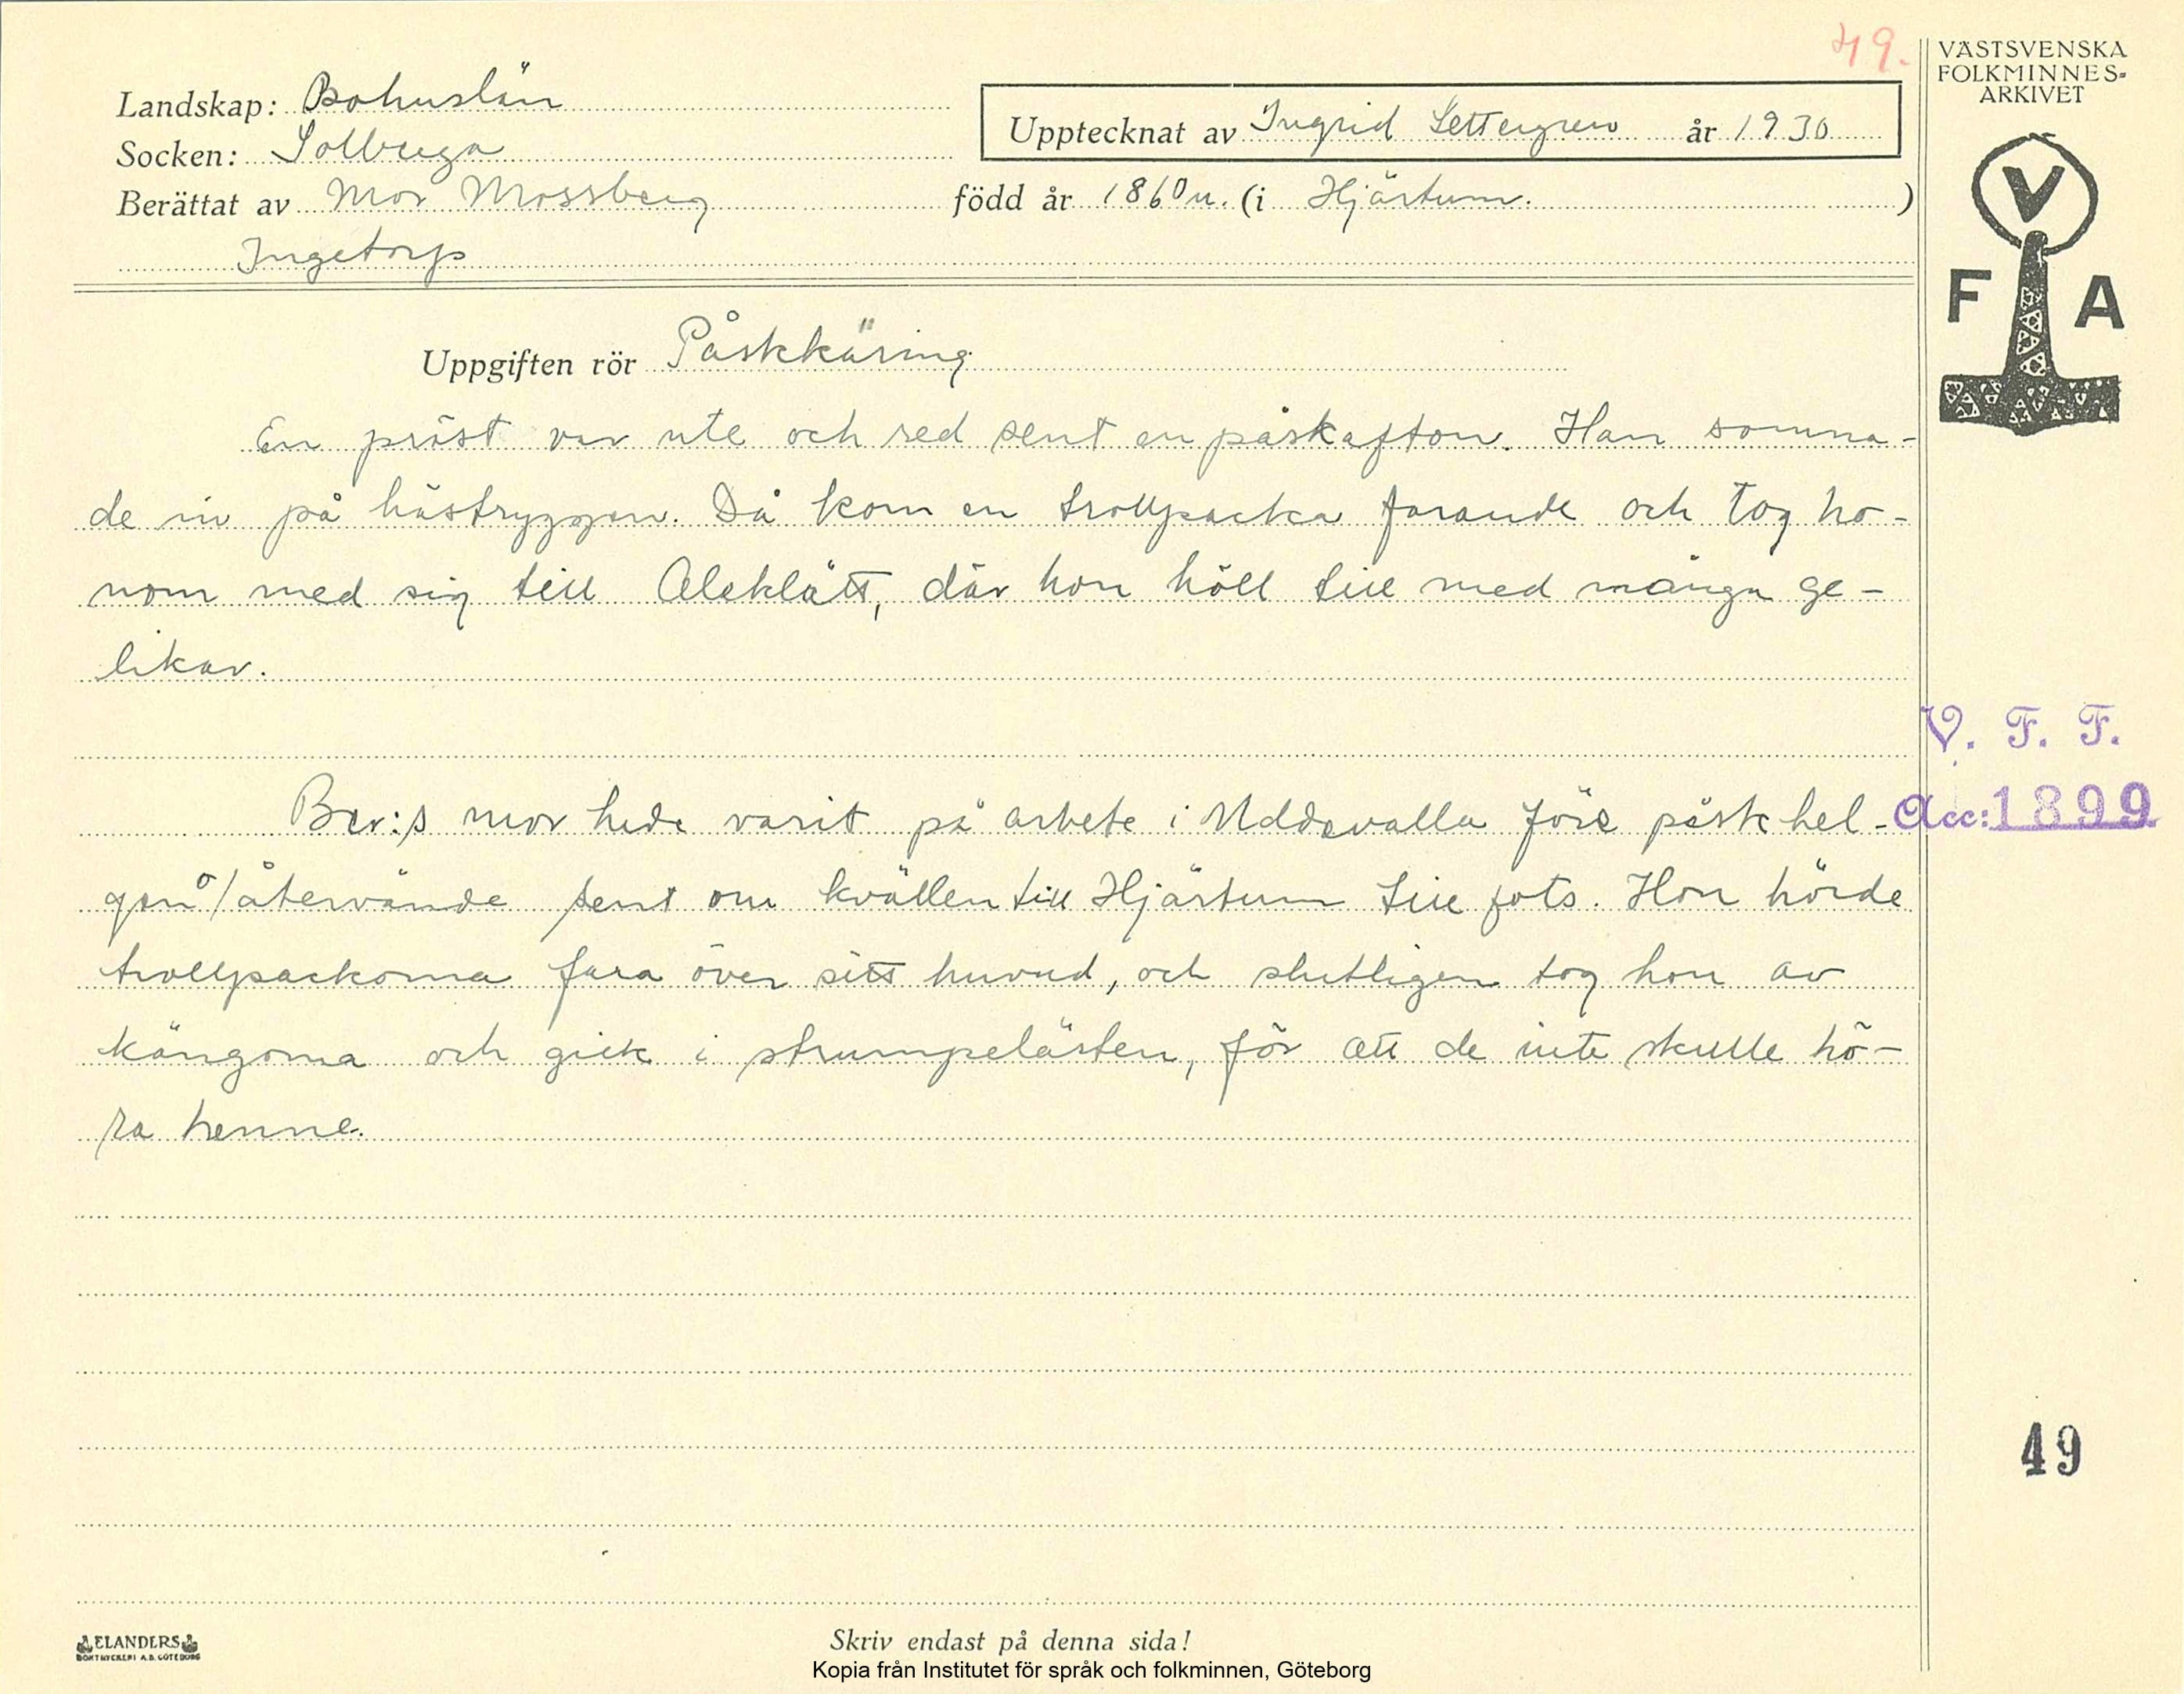 49.
VÄSTSVENSKA
FOLKMINNES-
ARKIVET
Landskap: Bohuslän
Upptecknat av Ingrid Settergren år 1930
Socken: Solberga
Berättat av Mor Mossberg född år 1860 (i Hjärtum. )
Ingetorp
V
F A
Uppgiften rör Påskkäring
En präst var ute och red sent en påskafton. Han somna-
de in på hästryggen. Då kom en trollpacka farande och tog ho-
nom med sig till Aleklätt, där hon höll till med många ge-
likar.
V. F. F.
Ber:s mor hade varit på arbete i Uddevalla före påskhel-
Acc: 1899
gen o/ återvände sent om kvällen till Hjärtum till fots. Hon hörde
trollpackorna fara över sitt huvud, och slutligen tog hon av
kängorna och gick i strumpelästen, för att de inte skulle hö-
ra henne.
49
ELANDERS
BOKTRYCKERI A.B. GÖTEBORG
Skriv endast på denna sida!
Kopia från Institutet för språk och folkminnen, Göteborg